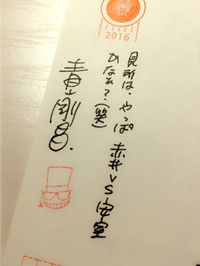 2016
見所は、やっぱ赤井VS安室
かなぁ?(笑)
青山剛昌.